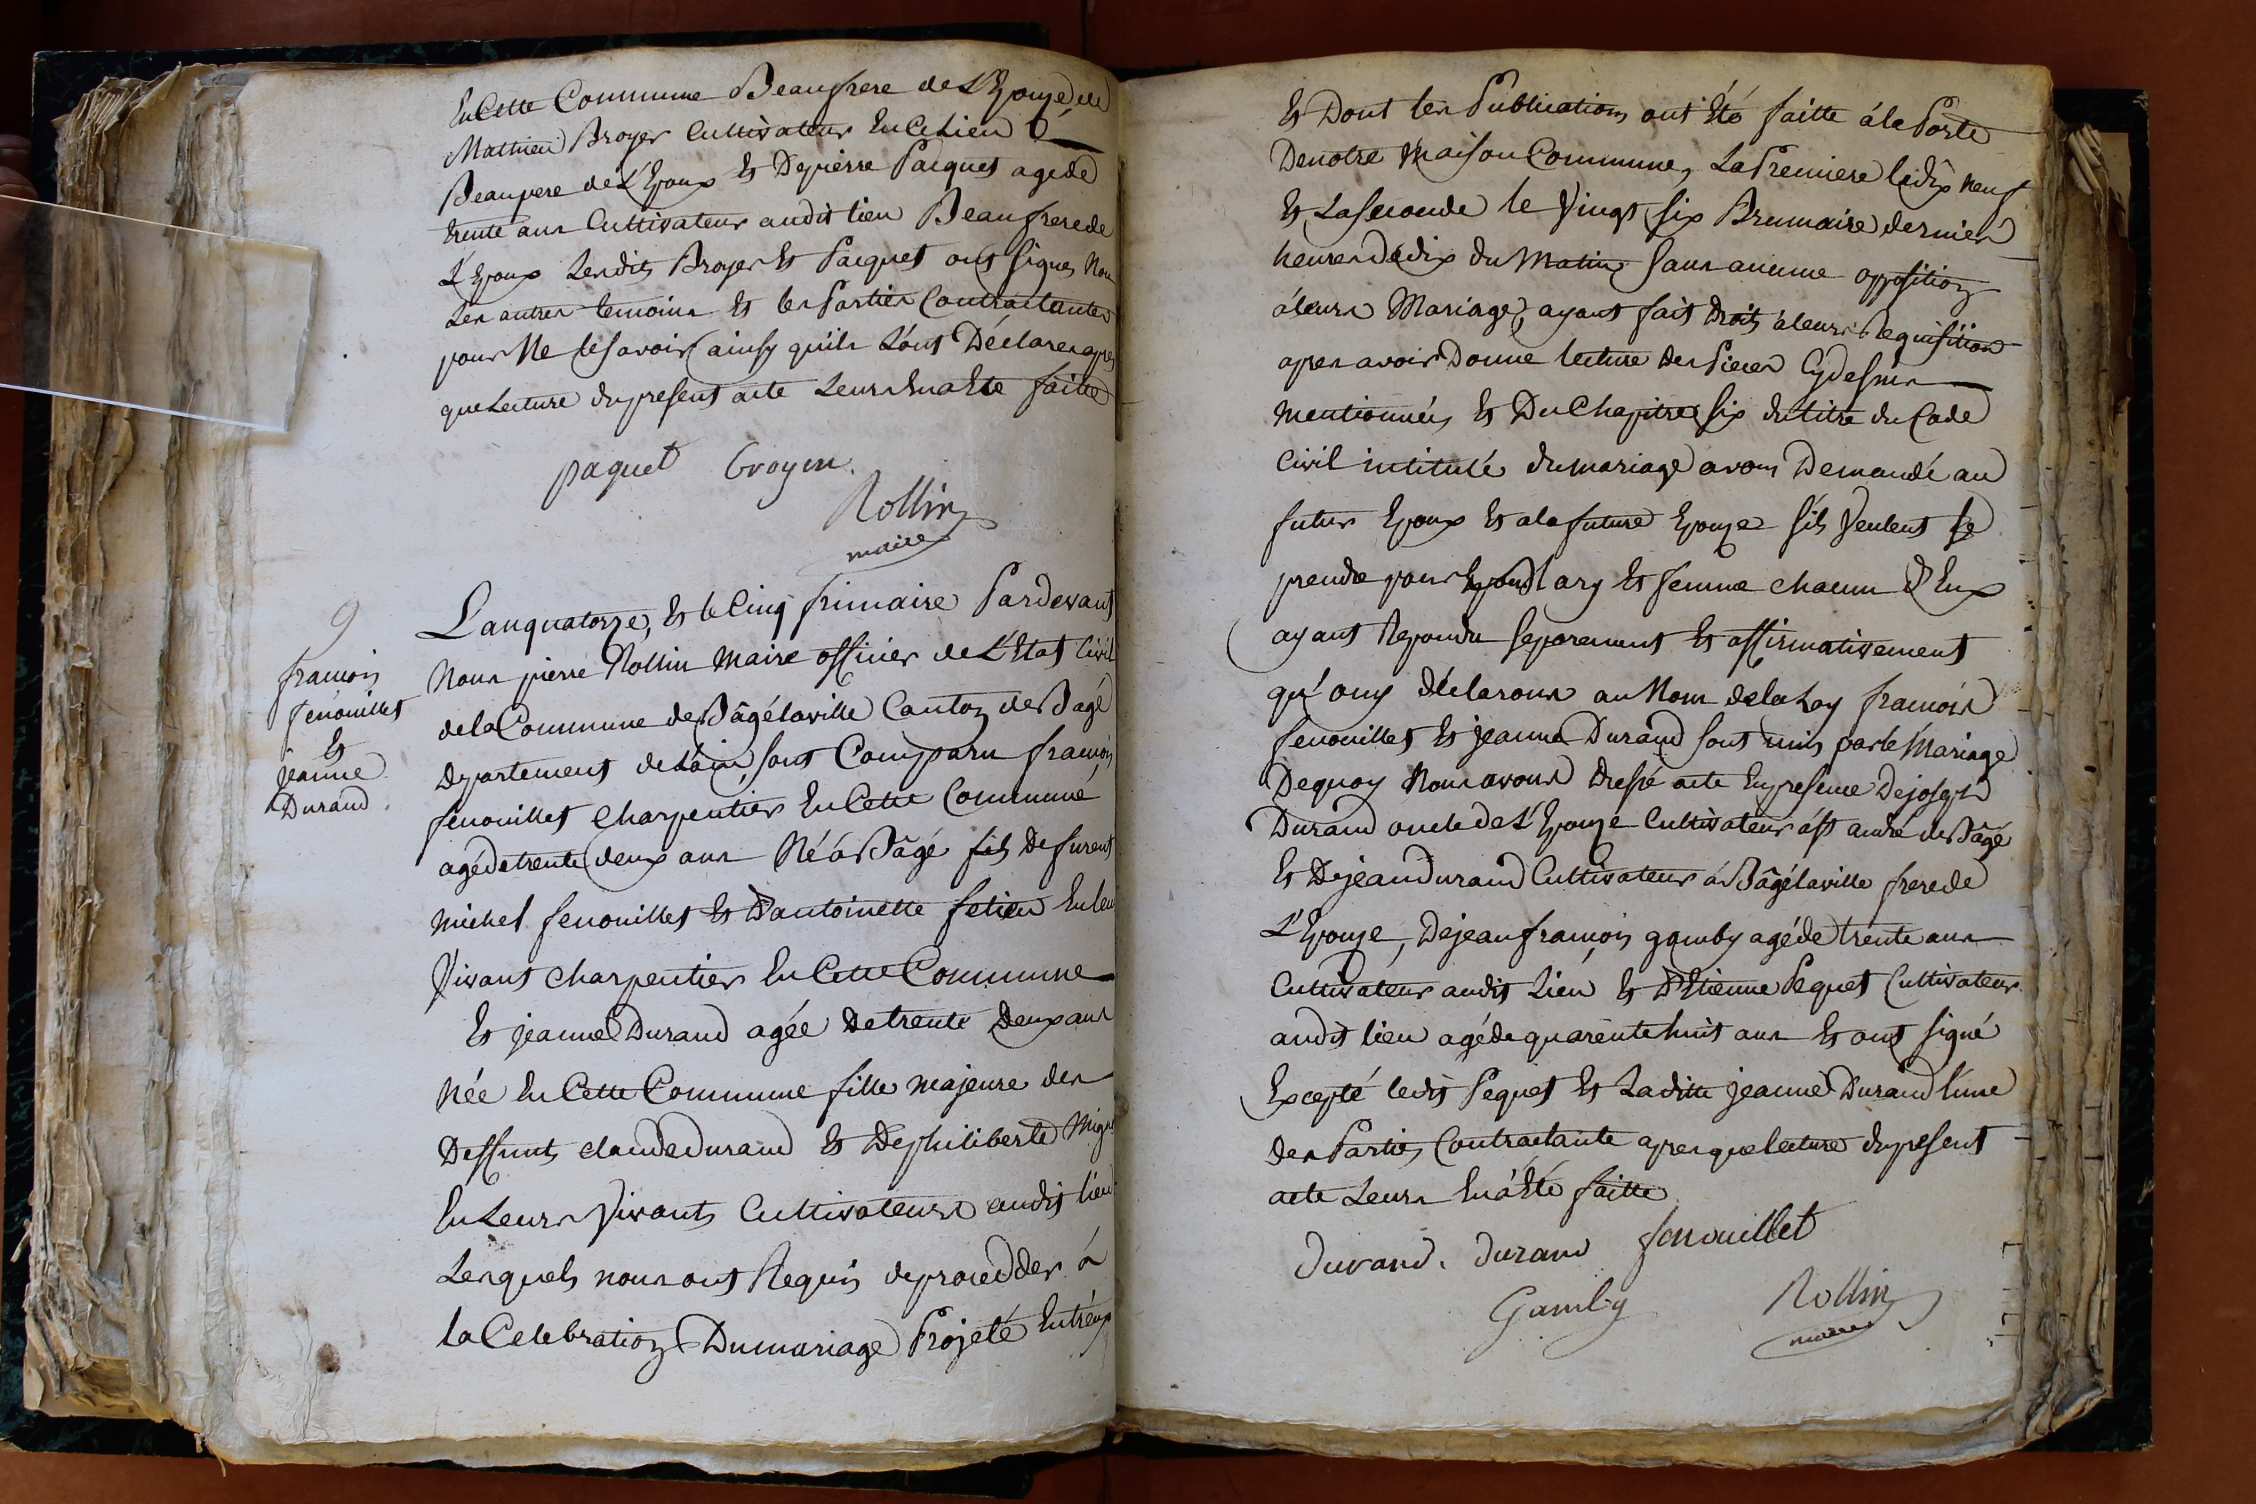 En Cette Commune Beaufrere de L'Epouze, de
Mathieu Broyer Cultivateur En Ce Lieu
Beaupere de L'Epoux Et De pierre Pacquet agé de
trente ans Cultivateur audit lieu Beaufrere de
L'Epoux Lesdits Broyer Et Pacquet ont signés Non
Les autres temoins Et les Parties Contractantes
pour Ne le savoir ainsy qu'ils L'ont Déclarer apres
que Lecture du present acte Leurs En a Eté faitte
paquet broyer.
Rollin
maire
9
francois
fenouillet
Et
jeanne
Durand.
L'an quatorze, Et le Cinq frimaire Pardevant
Nous pierre Rollin Maire officier de L'Etat Civil
de la Commune de Bâgélaville Canton de Bagé
Departement de L'ain, sont Comparu francois
fenouillet Charpentier En Cette Commune
agé de trente deux ans Né á Bâgé fils De furent
Michel fenouillet Et D'antoinette En leur
Vivant charpentier En Cette Commune
Et jeanne Durand agée De trente Deux ans
Née En Cette Commune fille majeure des
Deffunts claude durand Et De philiberte
En Leurs Vivants Cultivateurs audit lieu
Lesquels nous ont Requis de procedder á
la Celebration Du mariage Projeté Entr'eux
Et Dont les Publications ont Eté faitte á la Porte
De notre Maison Commune, La Premiere le dix neuf
Et La seconde le Vingt six Brumaire dernier
heures de dix du Matin sans aucune opposition
á leurs Mariage, ayant fait Droit á leurs Requisition
apres avoir Donné lecture des Pieces Cy dessus
Mentionnées Et Du Chapitre six du titre du Code
Civil intitulé du mariage avons Demandé au
futur Epoux Et a la future Epouze s'ils Veulent se
prendre pour Mary Et femme chacun D'Eux
ayant Repondu separement Et affirmativement
qu'ouy déclarons au Nom de la Loy francois
fenouillet Et jeanne Durand sont unis par le Mariage
De quoy Nous avons Dressé acte En presence De joseph
Durand oncle de L'Epouze Cultivateur á St andré de Bâgé
Et De jean Durand Cultivateur á Bâgélaville frere de
L'Epouze, De jean francois gamby agé de trente ans
Cultivateur audit Lieu Et D'Etienne Pequet Cultivateur
audit lieu agé de quarente huit ans Et ont signé
Excepté ledit Pequet Et Laditte jeanne Durand l'une
des Parties Contractante apres que lecture du present
acte Leurs En á Eté faitte
Durand. durand fenouillet
Gamby Rollin
maire